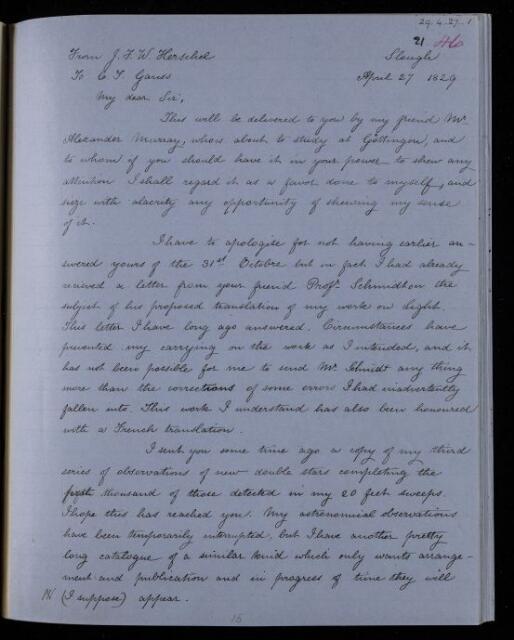 29.4.27.1
21 46
From J. F. W. Herschel Slough
To C. F. Gauss April 27 1829
My dear Sir,
This will be delivered to you by my friend Mr
Alexander Murray, who is about to study at Göttingen, and
to whom if you should have it in your power to shew any
attention I shall regard it as a favor done to myself, and
seize with alacrity any opportunity of shewing my sense
of it.
I have to apologise for not having earlier an-
swered yours of the 31st Octobre but in fact I had already
received a letter from your friend Profr. Schmidt on the
subject of his proposed translation of my work on Light.
This letter I have long ago answered. Circumstances have
prevented my carrying on the work as I intended, and it
has not been possible for me to send Mr Schmidt any thing
more than the corrections of some errors I had inadvertently
fallen into. This work I understand has also been honoured
with a French translation.
I sent you some time ago a copy of my third
series of observations of new double stars completing the
first thousand of those detected in my 20 feet sweeps.
I hope this has reached you. My astronomical observations
have been temporarily interrupted, but I have another pretty
long catalogue of a similar kind which only wants arrange-
ment and publication and in progress of time they will
(I suppose) appear.